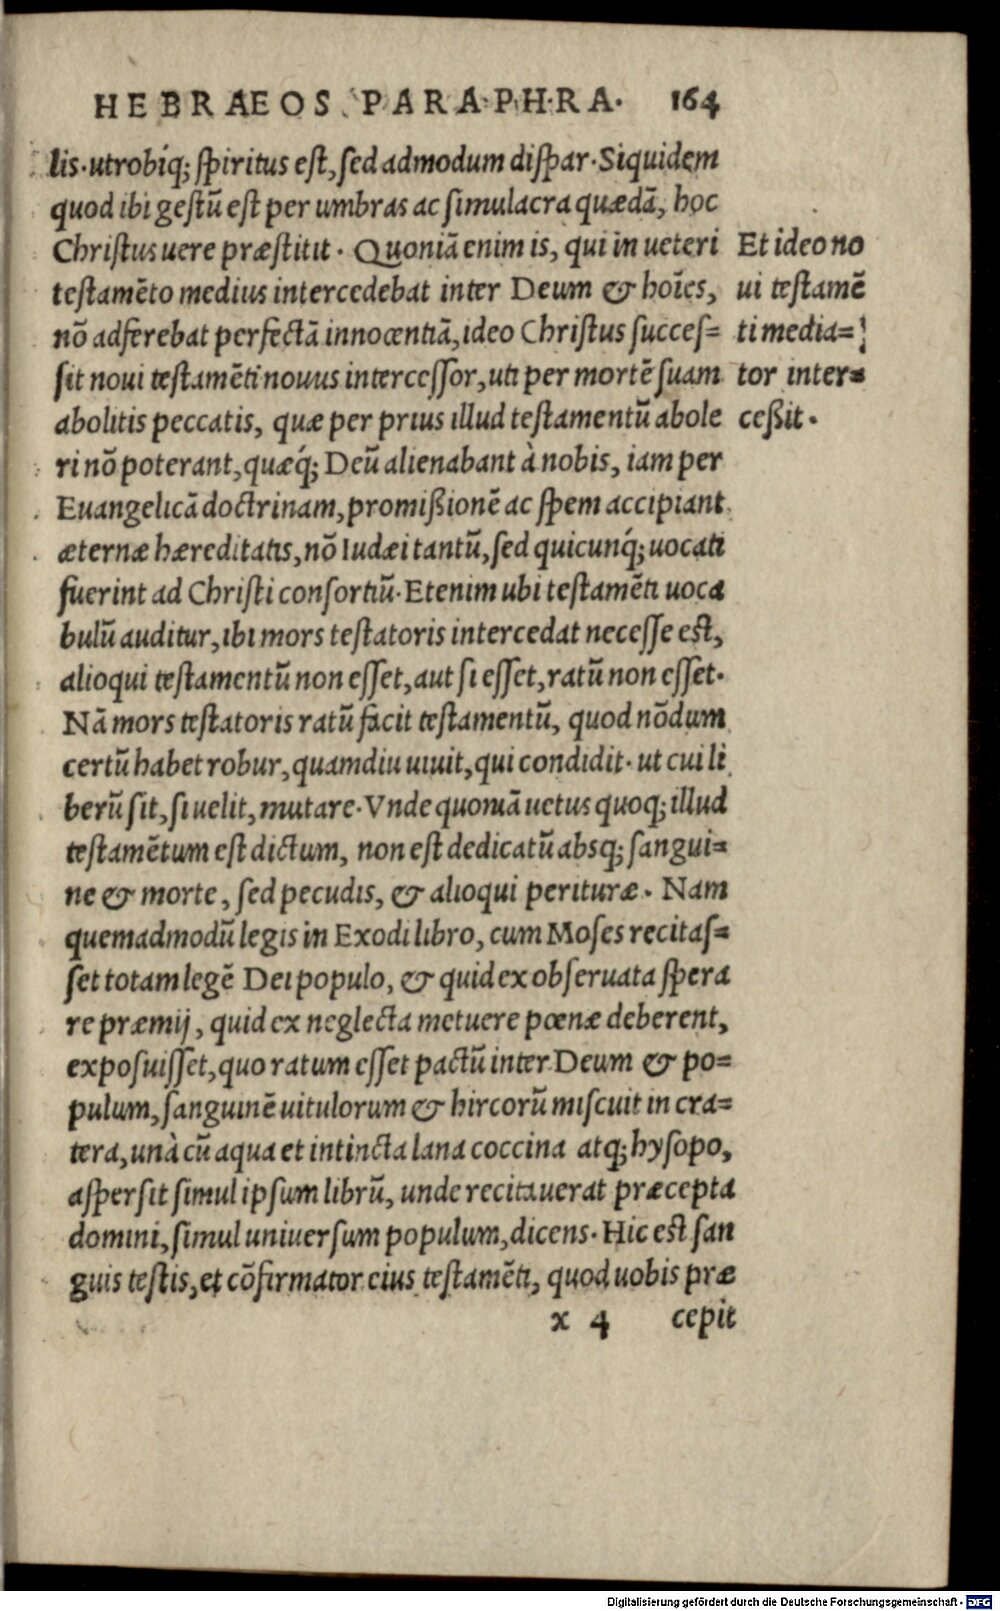 HEBRAEOS PARAPHRA. 164
lis. utrobiq́; spiritus est, sed admodum dispar. Siquidem
quod ibi gestũ est per umbras ac simulacra quædã, hoc
Christus uere præstitit. Quoniã enim is, qui in ueteri
testamẽto medius intercedebat inter Deum & hoĩes,
nõ adferebat perfectã innocentiã, ideo Christus succes=
sit noui testamẽti nouus intercessor, uti per mortẽ suam
abolitis peccatis, quæ per prius illud testamentũ abole
ri nõ poterant, quæq́; Deũ alienabant à nobis, iam per
Euangelicã doctrinam, promißionẽ ac spem accipiant
æternæ hæreditatis, nõ Iudæi tantũ, sed quicunq́; uocati
fuerint ad Christi consortiũ. Etenim ubi testamẽti uoca
bulũ auditur, ibi mors testatoris intercedat necesse est,
alioqui testamentũ non esset, aut si esset, ratũ non esset.
Nã mors testatoris ratũ facit testamentũ, quod nõdum
certũ habet robur, quamdiu uiuit, qui condidit. ut cui li
berũ sit, si uelit, mutare. Vnde quoniã uetus quoq; illud
testamẽtum est dictum, non est dedicatũ absq; sangui=
ne & morte, sed pecudis, & alioqui perituræ. Nam
quemadmodũ legis in Exodi libro, cum Moses recitas=
set totam legẽ Dei populo, & quid ex obseruata spera
re præmij, quid ex neglecta metuere pœnæ deberent,
exposuisset, quo ratum esset pactũ inter Deum & po=
pulum, sanguinẽ uitulorum & hircorũ miscuit in cra=
tera, unà cũ aqua et intincta lana coccina atq; hysopo,
aspersit simul ipsum librũ, unde recitauerat præcepta
domini, simul uniuersum populum, dicens. Hic est san
guis testis, et cõfirmator eius testamẽti, quod uobis præ
x 4 cepit
Et ideo no
ui testamẽ
ti media=
tor inter=
ceßit.
Digitalisierung gefördert durch die Deutsche Forschungsgemeinschaft - DFG